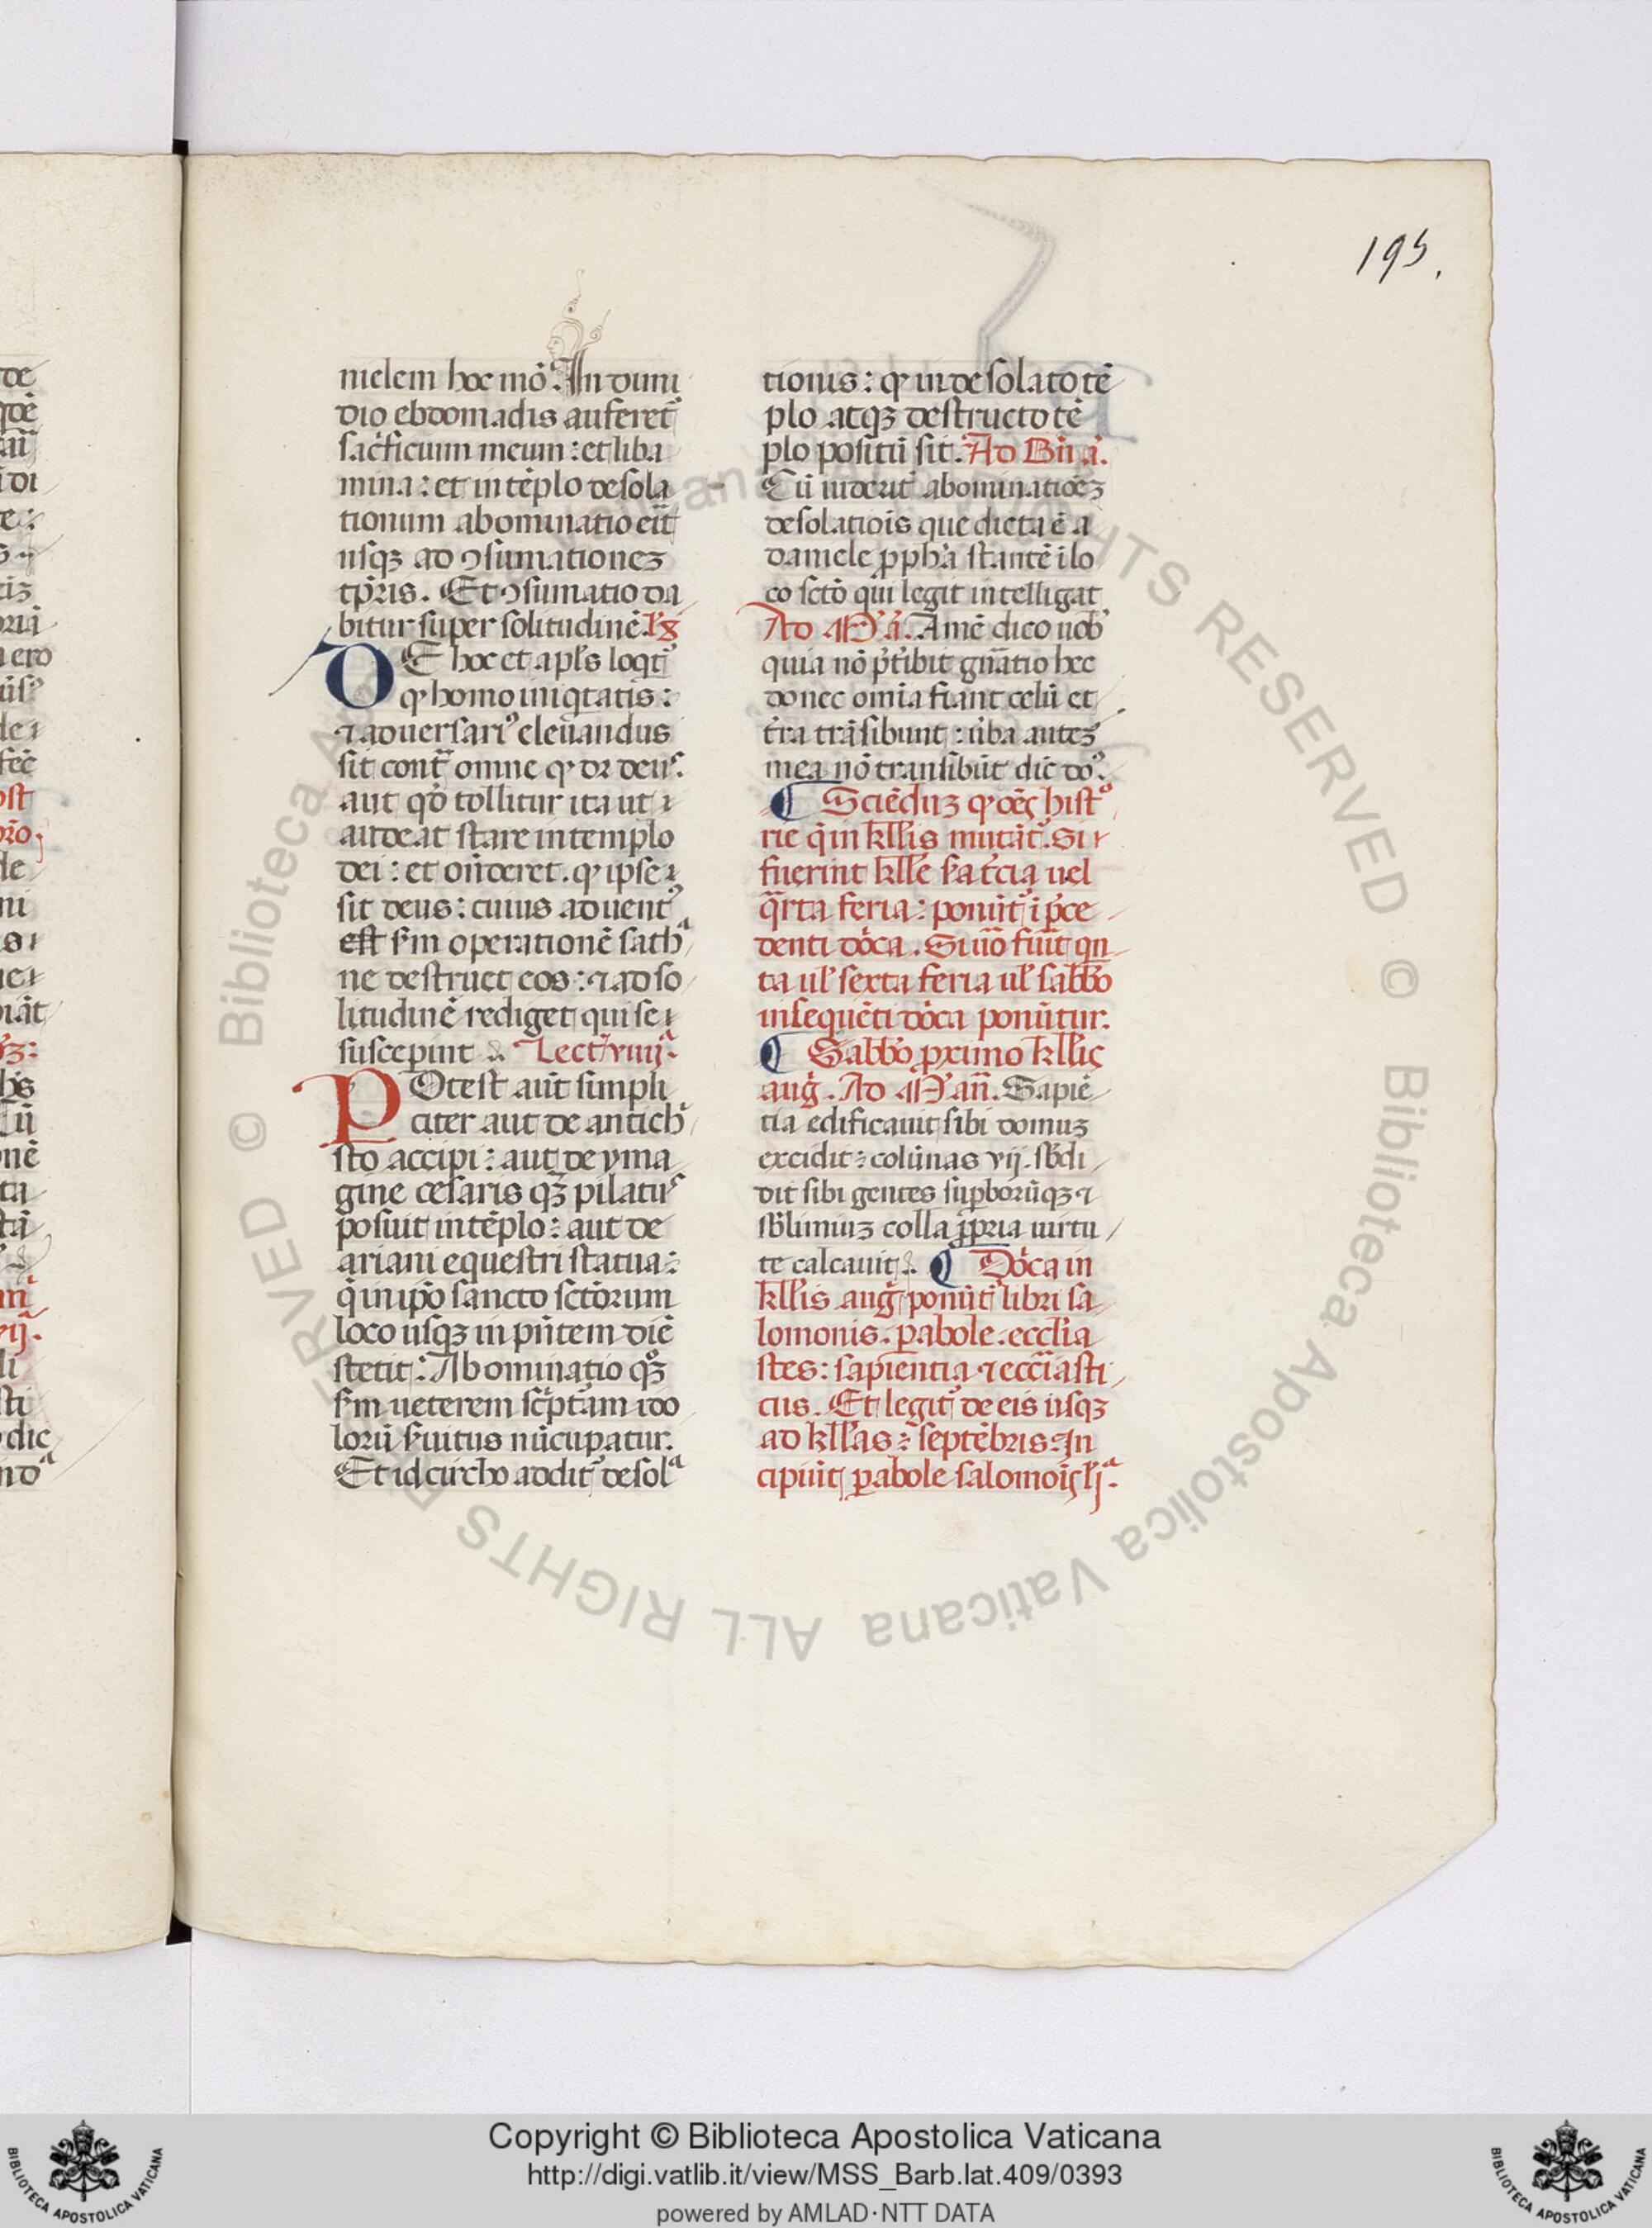 195.
nielem hoc mō. In dimi
dio ebdomadis auferet᷑
sac̓ficium meum: et liba
mina: et in tēplo desola
tionum abominatio erit
usqꝫ ad ꝯsumationeꝫ
tp̄ris. Et ꝯsumatio da
bitur super solitudinē.
DE hoc et apl̓s loqt᷑
ꝙ homo iniqtatis:
⁊ adversariꝰ elevandus
sit cont̄ omne ꝙ dr̄ deus.
aut qd̓ tollitur ita ut
audeat stare in templo
dei: et on̄deret. ꝙ ipse
sit deus: cuius advent᷑
est sm̄ operationē sathᵃ
ne destruet eos: ⁊ ad so
litudinē rediget qui se
susceperint Lect̓ viiij.
Potest aūt simpli
citer aut de antichⁱ
sto accipi: aut de yma
gine cesaris qꝫ pilatus
posuit in tēplo: aut de
ariani equestri statua:
q̓ in ip̄o sancto sctōrum
loco usqꝫ in pn̄tem diē
stetit: Abominatio qꝫ
sm̄ veterem sc̓pt᷑am ido
lorū s̓vitus nūcupatur.
Et idcircho addit᷑ de solᵃ
tionis: ꝙ in desolato tē
plo atqꝫ destructo tē
plo positū sit. Ad Bn̄.a̓.
Cū viderit̓ abominatiōeꝫ
desolatiōis que dicta ē a
daniele ꝓph̓a stantē i lo
co sctō qui legit intelligat
Ad M̓.a̓. Amē dico vob̓
quia nō p̓t̓ibit gn̄atio hec
donec omīa fiant celū et
t̓ra trāsibunt: v̓ba auteꝫ
mea nō transibūt dic̄ do᷑.
¶ Sciēduꝫ ꝙ oēs histᵒ
rie q̄ in kl̄lis mutāt᷑. Si
fuerint kl̄le s̓a t̓cia vel
q̄rta feria: ponūt᷑ i p̄ce
denti dōca. Si vō fūit qn̄
ta ul̓ sexta feria ul̓ sabb̓o
in sequēti dōca ponūtur.
¶ Sabb̓o ꝓximo kl̄lis
aug̓. Ad M̓ an̄. Sapiē
tia edificavit sibi domuꝫ
excidit: colūnas vij. sb̓di
dit sibi gentes supborūqꝫ ⁊
sb̓limiuꝫ colla ꝓpria virtu
te calcavit. ¶ Dōca in
kl̄lis aug̓ ponūt᷑ libri sa
lomonis. ꝑabole. eccl̄ia
stes: sapientia ⁊ ecc̄iasti
cus. Et legit᷑ de eis usqꝫ
ad kl̄las: septēbris: In
cipiūt ꝑabole salomoīs
Copyright © Biblioteca Apostolica Vaticana
http://digi.vatlib.it/view/MSS_Barb.lat.409/0393
powered by AMLAD·NTT DATA
BIBLIOTECA APOSTOLICA VATICANA
BIBLIOTECA APOSTOLICA VATICANA
© Biblioteca Apostolica Vaticana ALL RIGHTS RESERVED © Biblioteca Apostolica Vaticana ALL RIGHTS RESERVED